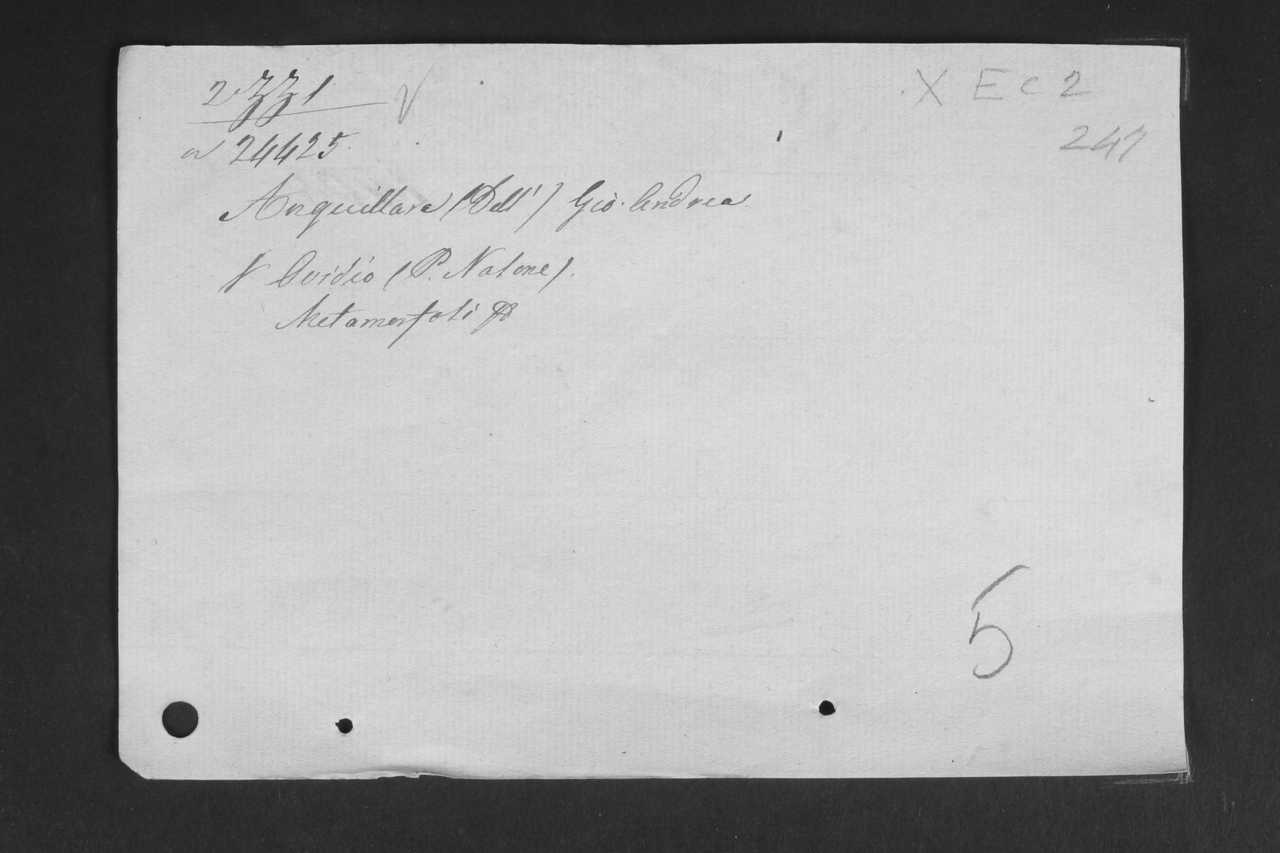 2331 √
X E C 2
a 24425.
247
Anquillara (Dell') Gio. Andrea
V Ovidio (P. Nasone).
Metamorfosi
5